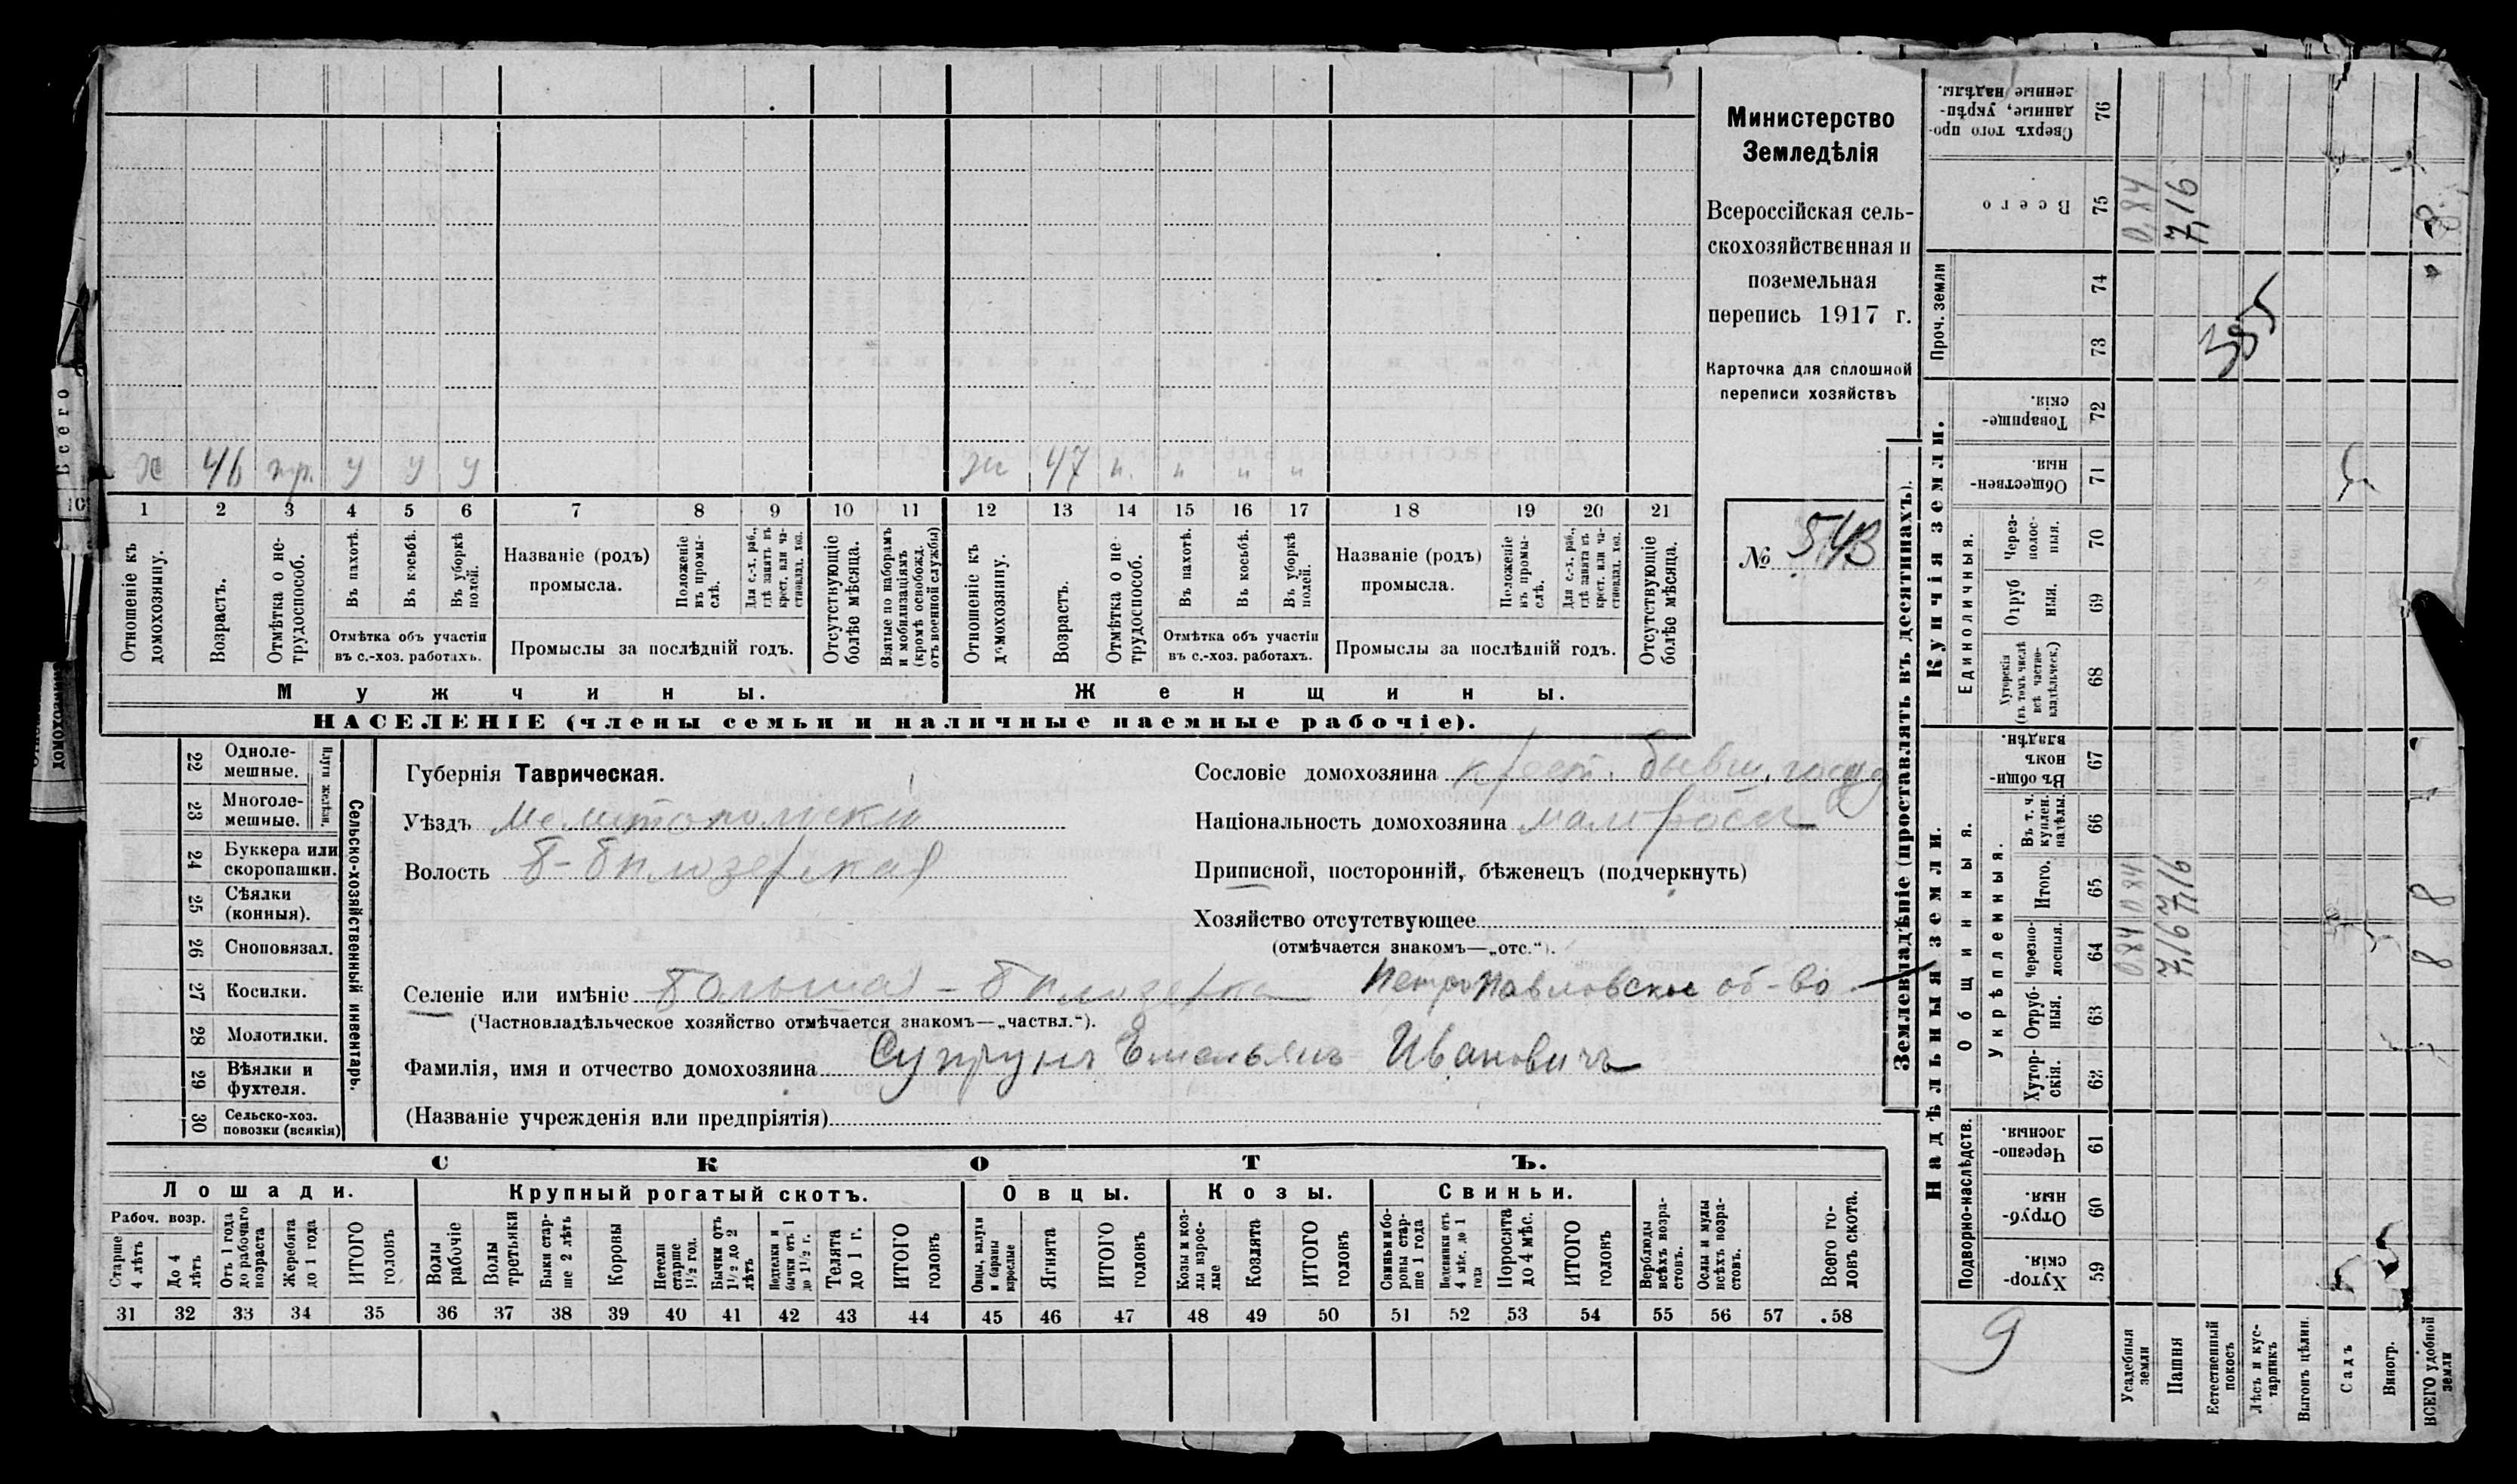 Министерство
Земледѣлія
Всероссійская сель-
скохозяйственная и
поземельная
перепись 1917 г.
Карточка для сплошной
переписи хозяйствъ
№ 543
х 46 пр. у у у
жи 47 п. " " "
1 2 3 4 5 6 7 8 9 10 11 12 13 14 15 16 17 18 19 20 21
Отношеніе къ домохозяину.
Возрастъ.
Отмѣтка о не-трудоспособ.
Въ пахотѣ.
Въ косьбѣ.
Въ уборкѣ полей.
Отмѣтка объ участіи
въ с.-хоз. работахъ.
Названіе (родъ)
промысла.
Положеніе въ промы-слѣ.
Для с.-х. раб., гдѣ занятъ въ крест. или ча-стновлад. хоз.
Промыслы за послѣдній годъ.
Отсутствующіе болѣе мѣсяца.
Взятые по наборамъ и мобилизаціямъ (кромѣ освобожд. отъ военной службы)
Отношеніе къ домохозяину.
Возрастъ.
Отмѣтка о не-трудоспособ.
Въ пахотѣ.
Въ косьбѣ.
Въ уборкѣ полей.
Отмѣтка объ участіи
въ с.-хоз. работахъ.
Названіе (родъ)
промысла.
Положеніе въ промы-слѣ.
Для с.-х. раб., гдѣ занята въ крест. или ча-стновлад. хоз.
Промыслы за послѣдній годъ.
Отсутствующіе болѣе мѣсяца.
Мужчины.
Женщины.
НАСЕЛЕНІЕ (члены семьи и наличные наемные рабочіе).
Сельско-хозяйственный инвентарь.
22 Одноле-мешные.
23 Многоле-мешные.
24 Буккера или скоропашки.
25 Сѣялки (конныя).
26 Сноповязал.
27 Косилки.
28 Молотилки.
29 Вѣялки и фухтеля.
30 Сельско-хоз. повозки (всякія)
Губернія Таврическая.
Уѣздъ Мелитопольскій
Волость Б-Бѣлозерская
Сословіе домохозяина крест. бывш. госуд
Національность домохозяина малоросс
Приписной, посторонній, бѣженецъ (подчеркнуть)
Хозяйство отсутствующее
(отмѣчается знакомъ—„отс.“).
Селеніе или имѣніе Большая-Бѣлозерка Петропавловское об-во
(Частновладѣльческое хозяйство отмѣчается знакомъ—„частвл.“).
Фамилія, имя и отчество домохозяина Супрунъ Емельянъ Ивановичъ
(Названіе учрежденія или предпріятія)
СКОТЪ.
Лошади.
Крупный рогатый скотъ.
Овцы.
Козы.
Свиньи.
Рабоч. возр.
Старше 4 лѣтъ
До 4 лѣтъ
Отъ 1 года до рабочаго возраста
Жеребята до 1 года
ИТОГО головъ
Волы рабочіе
Волы третьяки
Быки стар-ше 2 лѣтъ
Коровы
Нетели старше 1½ год.
Бычки отъ 1½ до 2 лѣтъ
Подтелки и бычки отъ 1 до 1½ г.
Телята до 1 г.
ИТОГО головъ
Овцы, валухи и бараны взрослые
Ягнята
ИТОГО головъ
Козы и коз-лы взрос-лые
Козлята
ИТОГО головъ
Свиньи и бо-ровы стар-ше 1 года
Подсвинки отъ 4 мѣс. до 1 года
Поросята до 4 мѣс.
ИТОГО головъ
Верблюды всѣхъ возра-стовъ.
Ослы и мулы всѣхъ возра-стовъ.
Всего го-ловъ скота.
31 32 33 34 35 36 37 38 39 40 41 42 43 44 45 46 47 48 49 50 51 52 53 54 55 56 57 58
Землевладѣніе (проставлять въ десятинахъ).
Надѣльныя земли.
Купчія земли.
Проч. земли
Подворно-наслѣдств.
Общинныя.
Укрѣпленныя.
Единоличныя.
Хутор-скія. 59
Отруб-ныя. 60
Черезпо-лосныя. 61
Хутор-скія. 62
Отруб-ныя. 63
Черезпо-лосныя. 64
Итого. 65
Въ т. ч. куплен. надѣлы. 66
Въ общин-номъ владѣн. 67
Хуторскія (въ томъ числѣ всѣ частно-владѣльческ.) 68
Отруб ныя. 69
Через-полос-ныя. 70
Обществен-ныя. 71
Товарище-скія. 72
73
74
Всего 75
Сверхъ того про-данные, укрѣп-ленные надѣлы. 76
Усадебныя земли 0,84 0,84 0,84
Пашня 7,16 7,16 7,16
Естественный покосъ
Лѣсъ и кус-тарникъ
Выгонъ цѣлин.
Садъ
Виногр.
ВСЕГО удобной земли 8 8 8
385
9
Всего